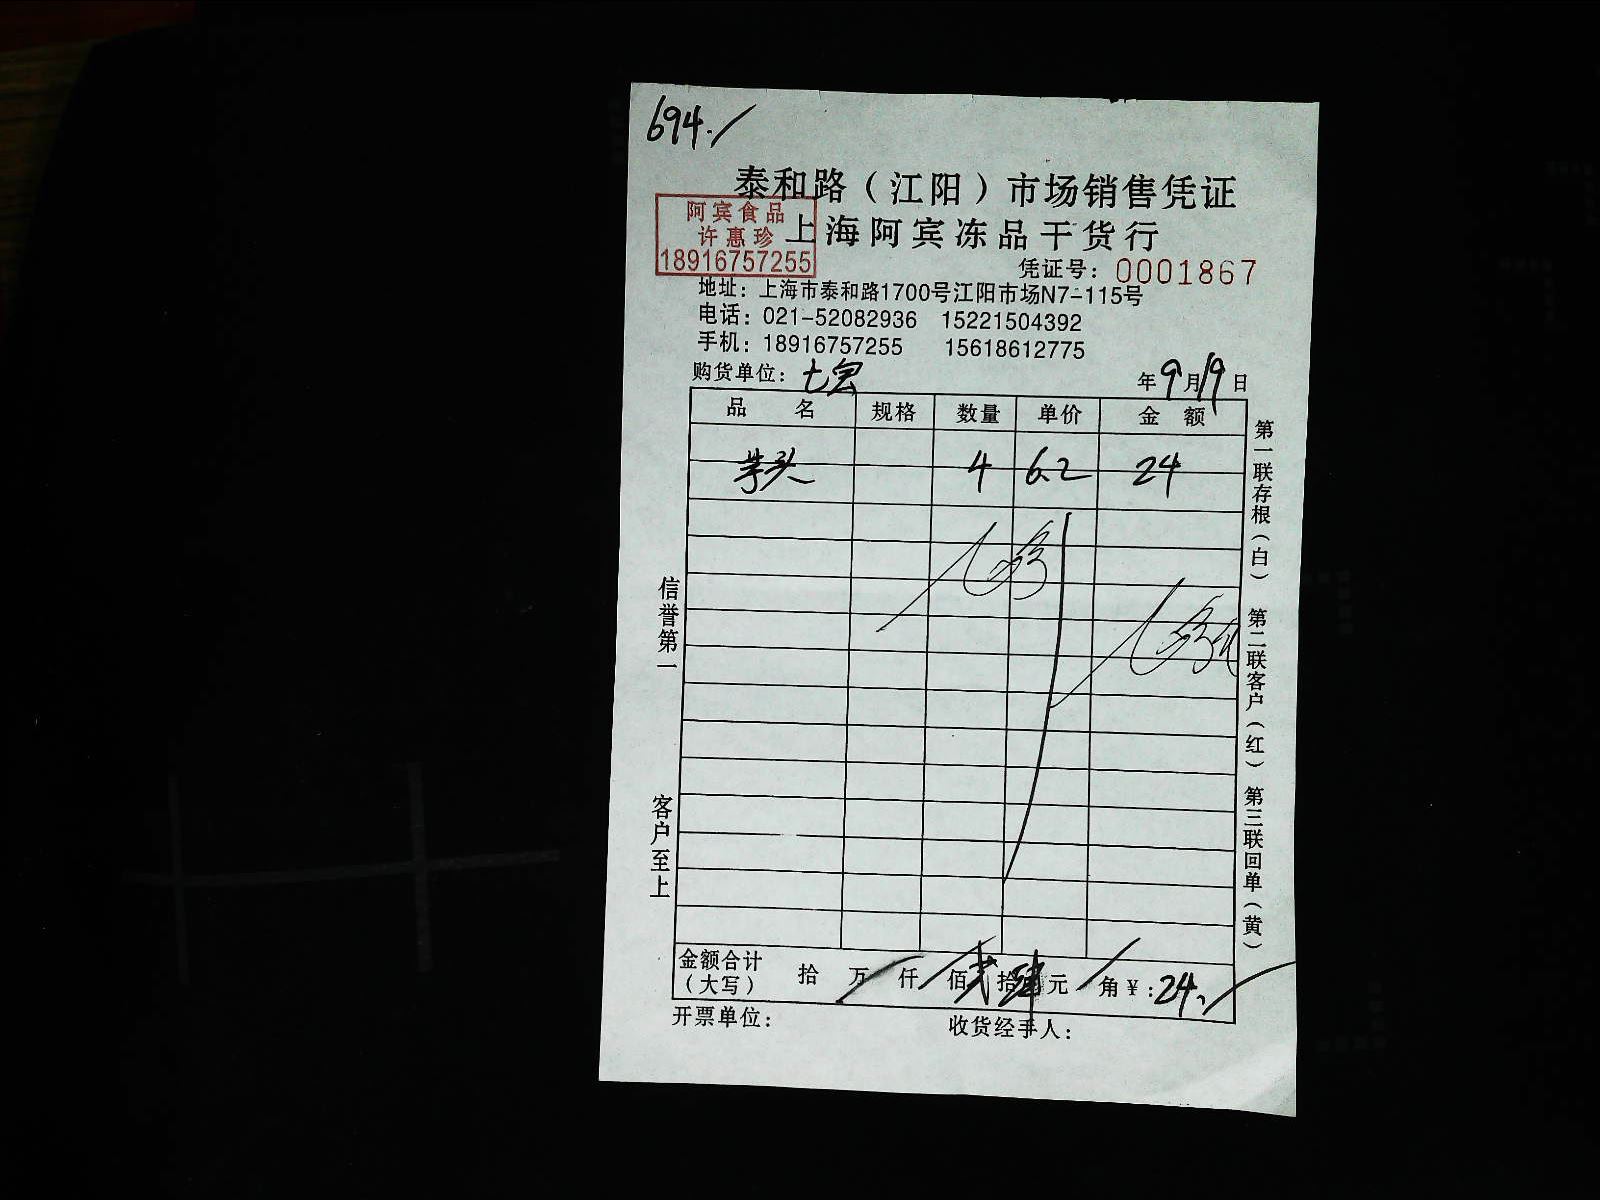 694./
泰和路（江阳）市场销售凭证
阿宾食品
许惠珍
18916757255
上海阿宾冻品干货行
凭证号：0001867
地址：上海市泰和路1700号江阳市场N7-115号
电话：021-52082936 15221504392
手机：18916757255 15618612775
购货单位：七宝
年9月19日
品名 规格 数量 单价 金额
芋头 4 6.2 24
信誉第一
客户至上
第一联存根（白） 第二联客户（红） 第三联回单（黄）
金额合计（大写） 拾 万 仟 佰 贰 拾 肆 元 角 ¥：24./
开票单位： 收货经手人：